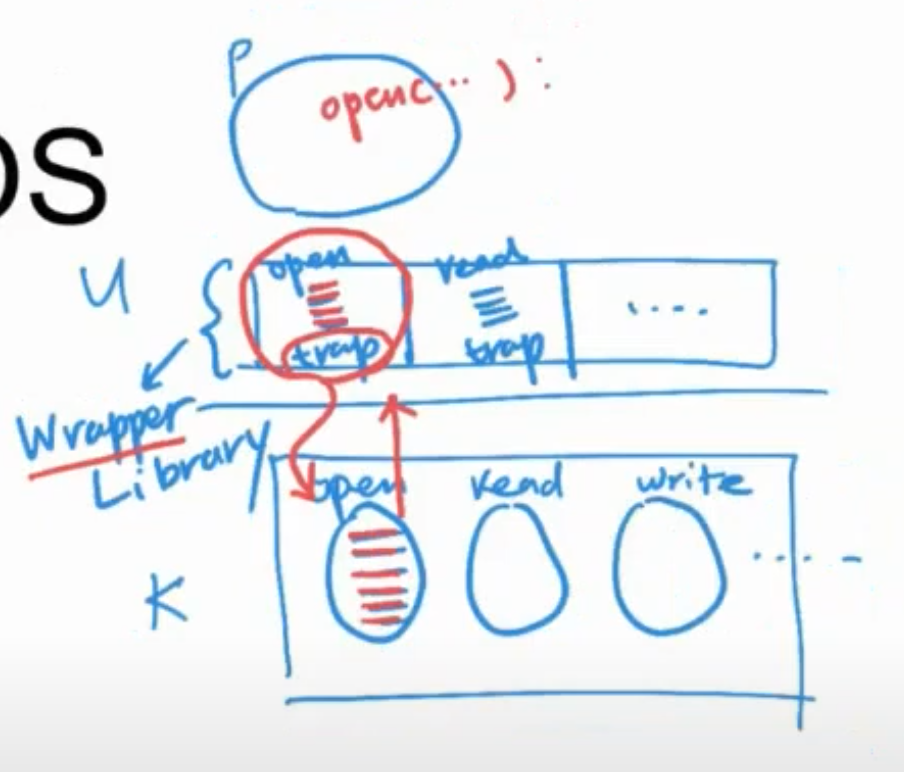 OS
P
open(... ) :
U
open
read
trap
trap
....
Wrapper
Library
K
open
read
write
.... -